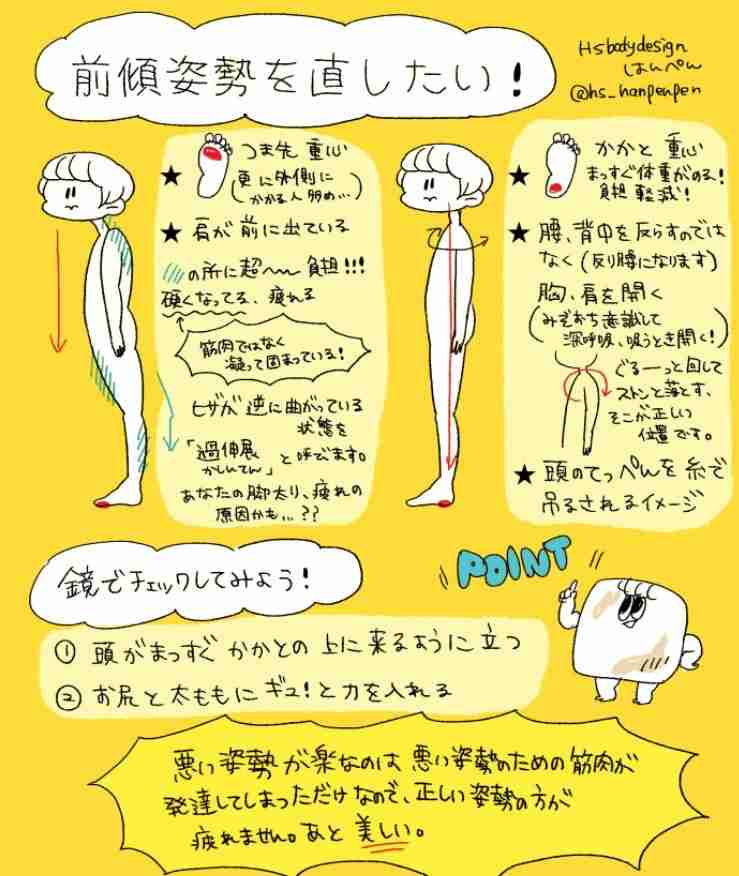 前傾姿勢を直したい!
Hsbodydesign
はんぺん
@hs_hanpenpen
★ つま先 重心
(更に外側に
かかる人多め…)
★ 肩が前に出ている
の所に超〜〜負担!!!
硬くなってる、疲れる
筋肉ではなく
凝って固まっている!
ヒザが逆に曲がっている
状態を
「過伸展
かしんてん」と呼びます。
あなたの脚太り、疲れの
原因かも…??
★ かかと 重心
まっすぐ体重がのる!
負担軽減!
★ 腰、背中を反らすのでは
なく(反り腰になります)
胸、肩を開く
(みぞおち意識して
深呼吸、吸うとき開く!)
ぐるーっと回して
ストンと落とす、
そこが正しい
位置です。
★ 頭のてっぺんを糸で
吊るされるイメージ
鏡でチェックしてみよう!
POINT
① 頭がまっすぐかかとの上に来るように立つ
② お尻と太ももにギュ!と力を入れる
悪い姿勢が楽なのは悪い姿勢のための筋肉が
発達してしまっただけなので、正しい姿勢の方が
疲れません。あと美しい。